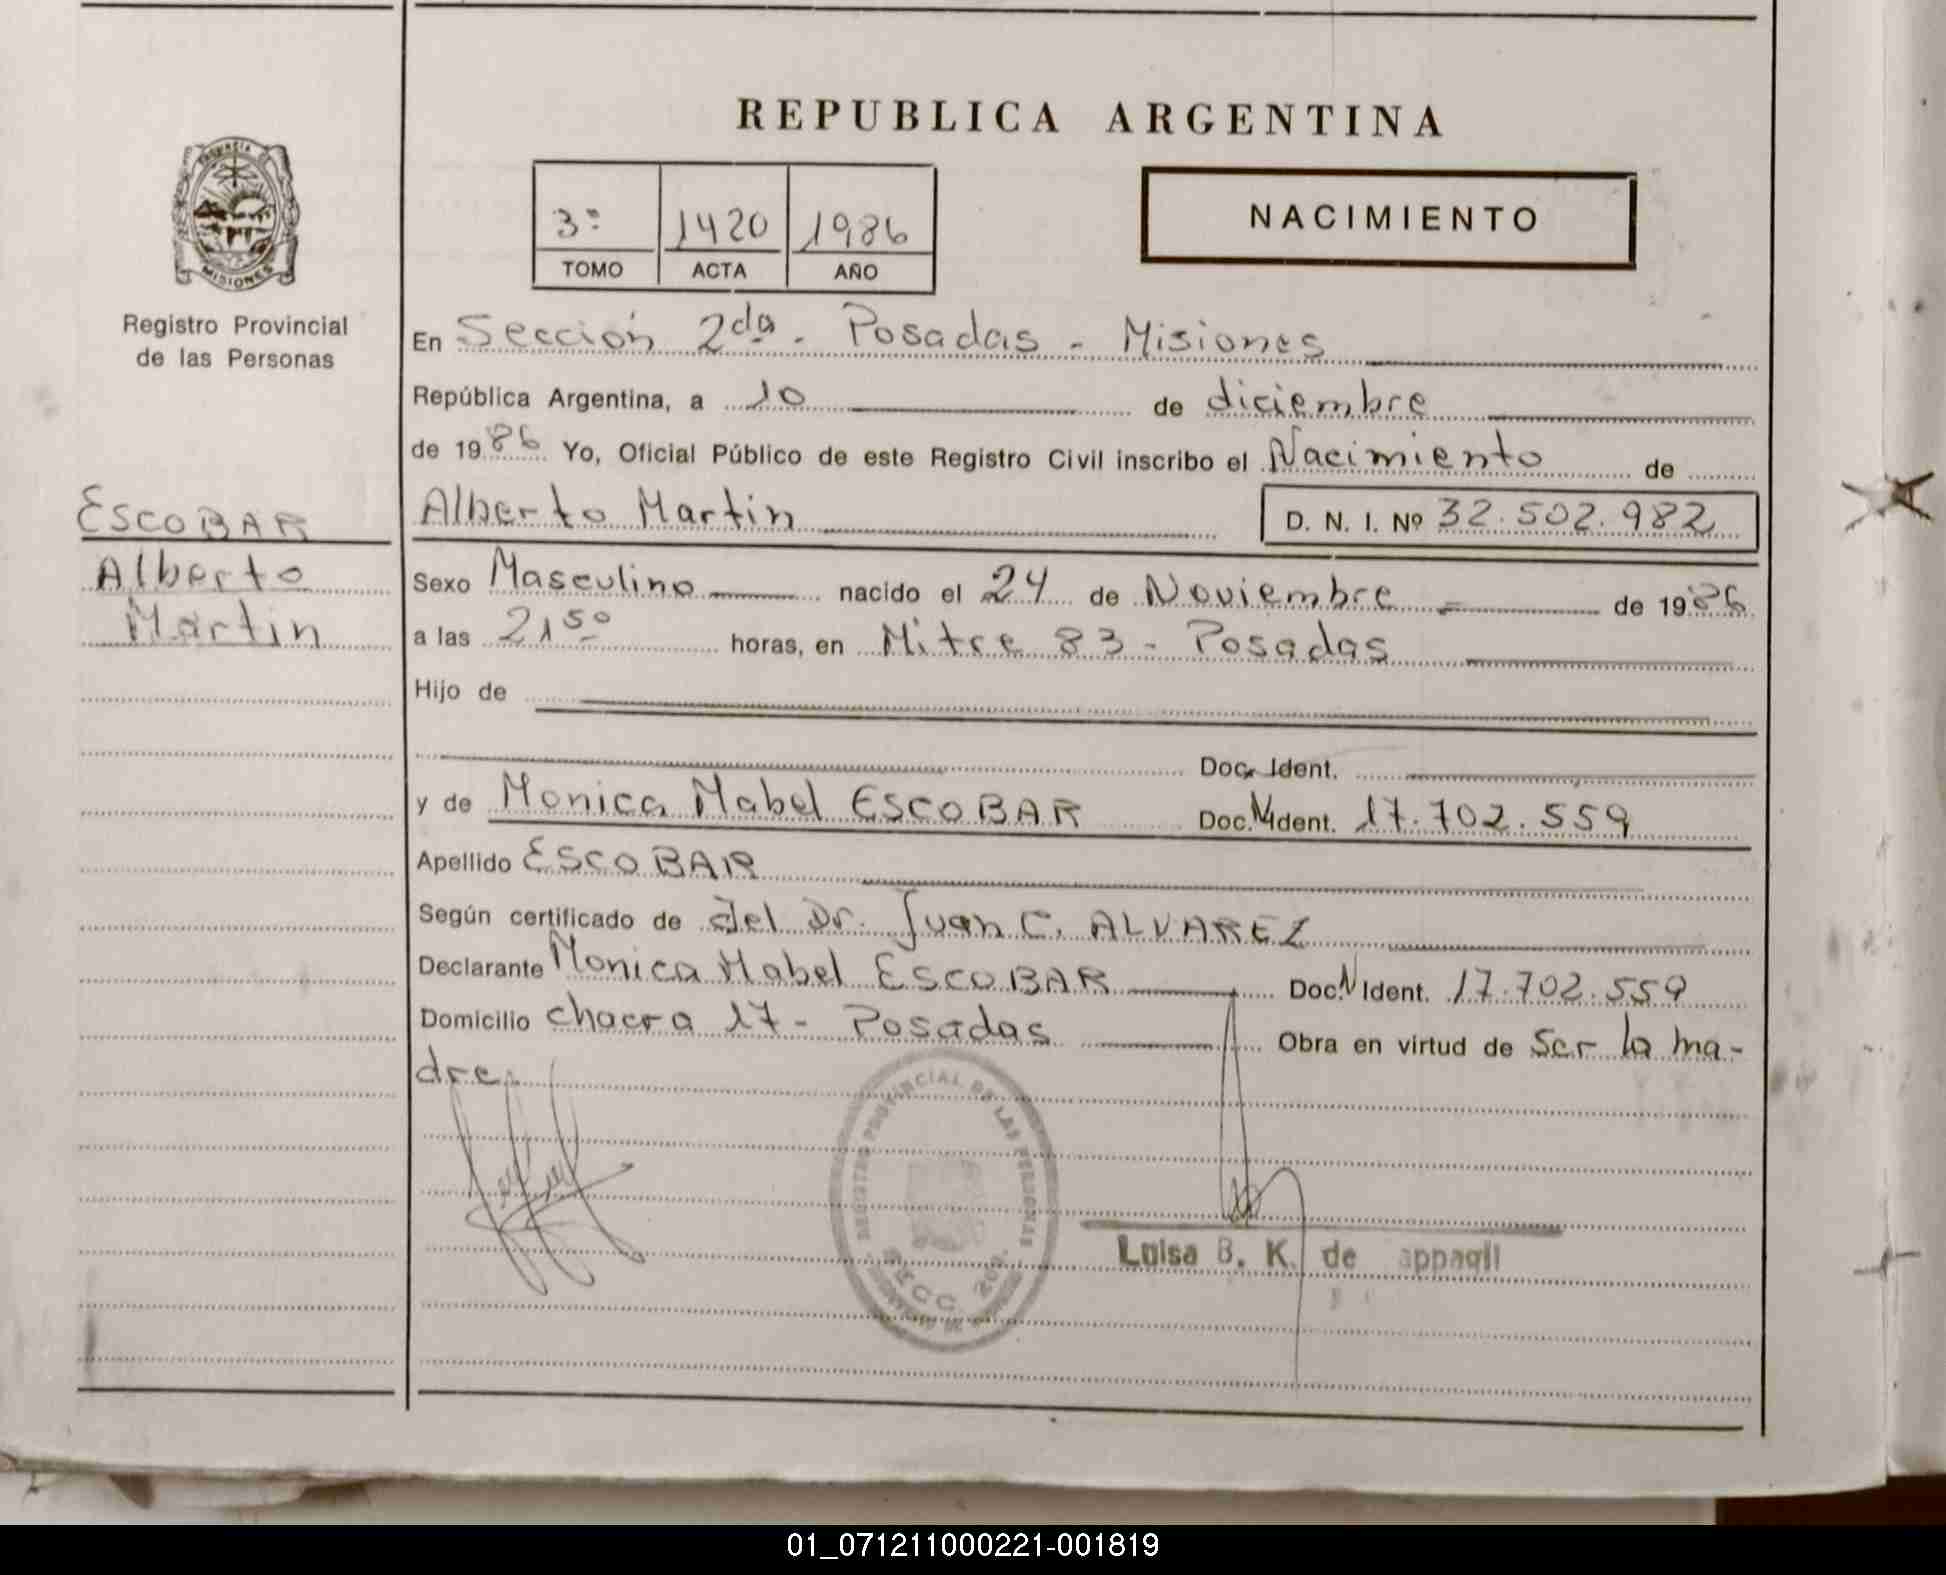 REPUBLICA ARGENTINA
PROVINCIA DE
MISIONES
Registro Provincial
de las Personas
3º 1420 1986
TOMO ACTA AÑO
NACIMIENTO
En Sección 2da - Posadas - Misiones
República Argentina, a 10 de diciembre
de 1986 Yo, Oficial Público de este Registro Civil inscribo el Nacimiento de
ESCOBAR
Alberto
Martin
Alberto Martin D. N. I. Nº 32.502.982
Sexo Masculino nacido el 24 de Noviembre de 1986
a las 21 50 horas, en Mitre 83 - Posadas
Hijo de
Doc. Ident.
y de Monica Mabel ESCOBAR Doc. N Ident. 17.702.559
Apellido ESCOBAR
Según certificado de del Dr. Juan C. ALVAREZ
Declarante Monica Mabel ESCOBAR Doc. N Ident. 17.702.559
Domicilio chacra 17 - Posadas Obra en virtud de Ser la ma-
dre.
REGISTRO PROVINCIAL DE LAS PERSONAS
SECC. 2da.
Luisa B. K. de
01_071211000221-001819